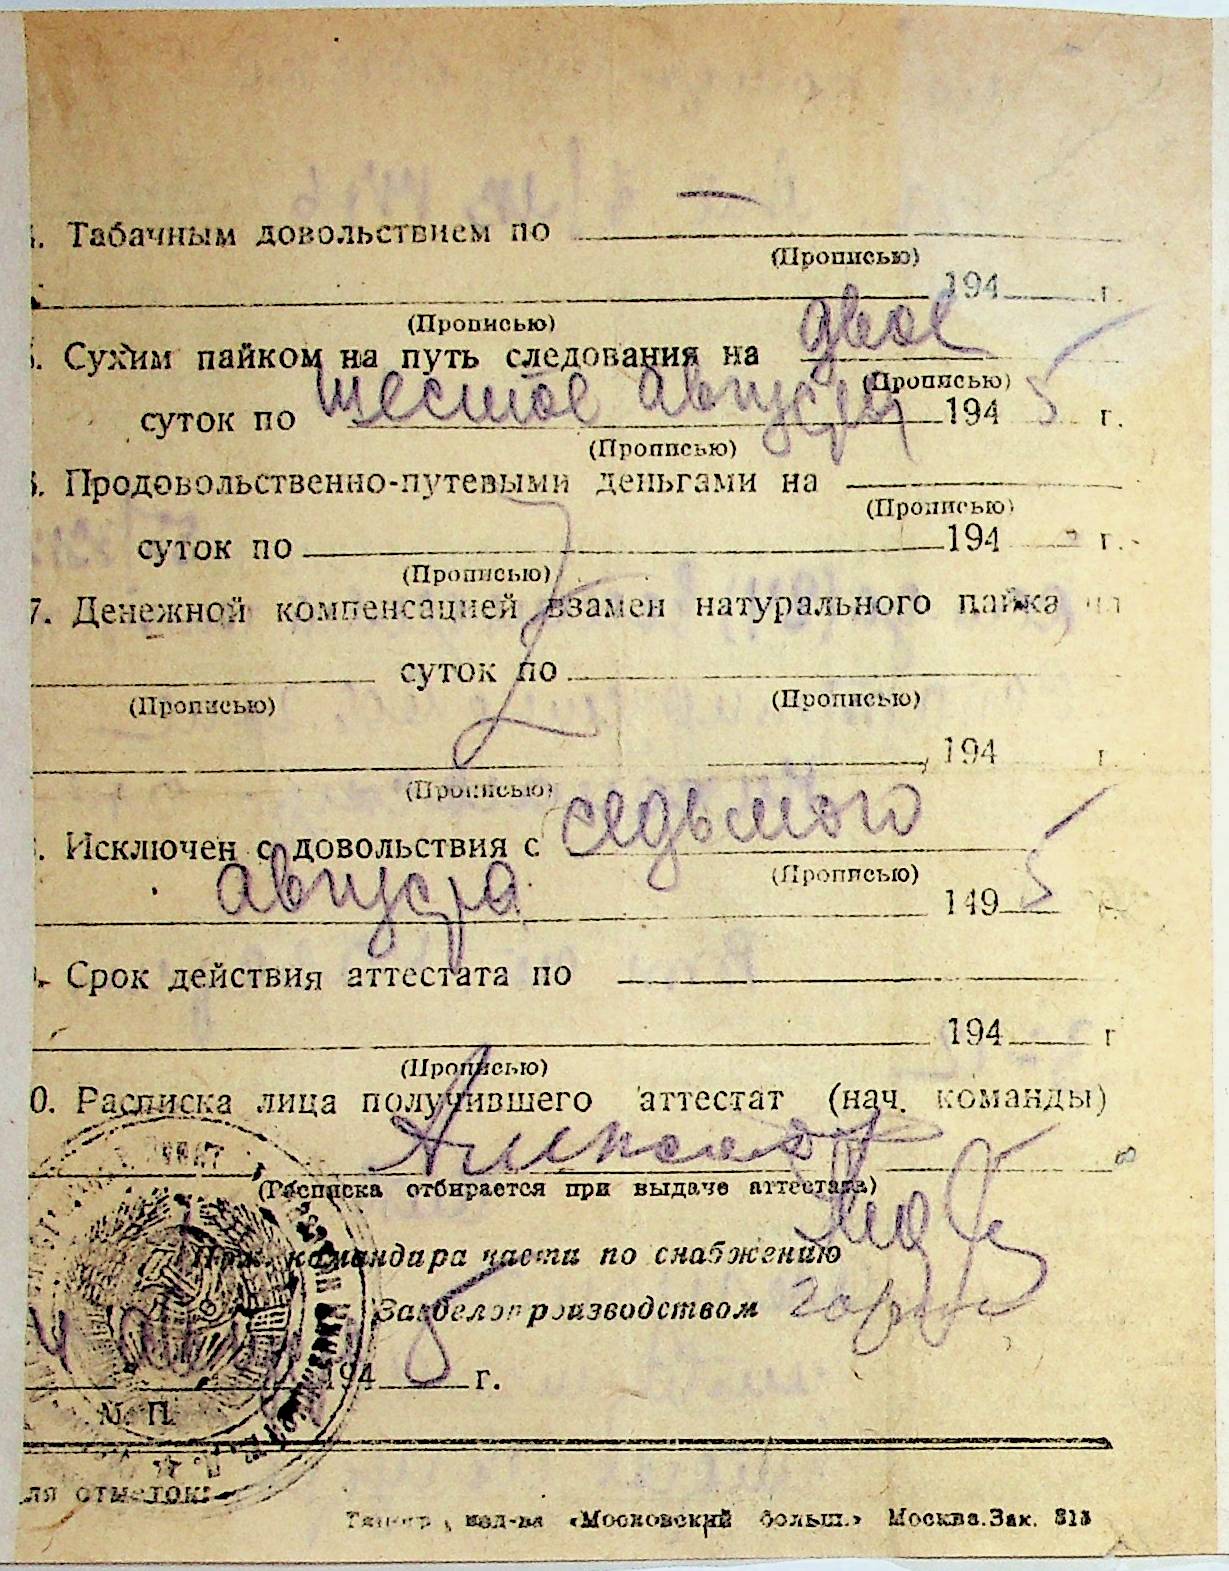 . Табачным довольствием по
(Прописью)
194 г.
(Прописью)
5. Сухим пайком на путь следования на двое
(Прописью)
суток по шестое августа 194 5 г.
(Прописью)
6. Продовольственно-путевыми деньгами на
(Прописью)
суток по 194 г.
(Прописью)
7. Денежной компенсацией взамен натурального пайка на
суток по
(Прописью) (Прописью)
194 г.
(Прописью)
. Исключен с довольствия с седьмого
(Прописью)
августа 149 5
. Срок действия аттестата по
194 г
(Прописью)
0. Расписка лица получившего аттестат (нач. команды)
(Расписка отбирается при выдаче аттестата)
Пом. командара части по снабжению
Завделопроизводством
194 5 г.
М. П.
ля отметок:
изд-ва «Московский больш.» Москва.Зак. 313